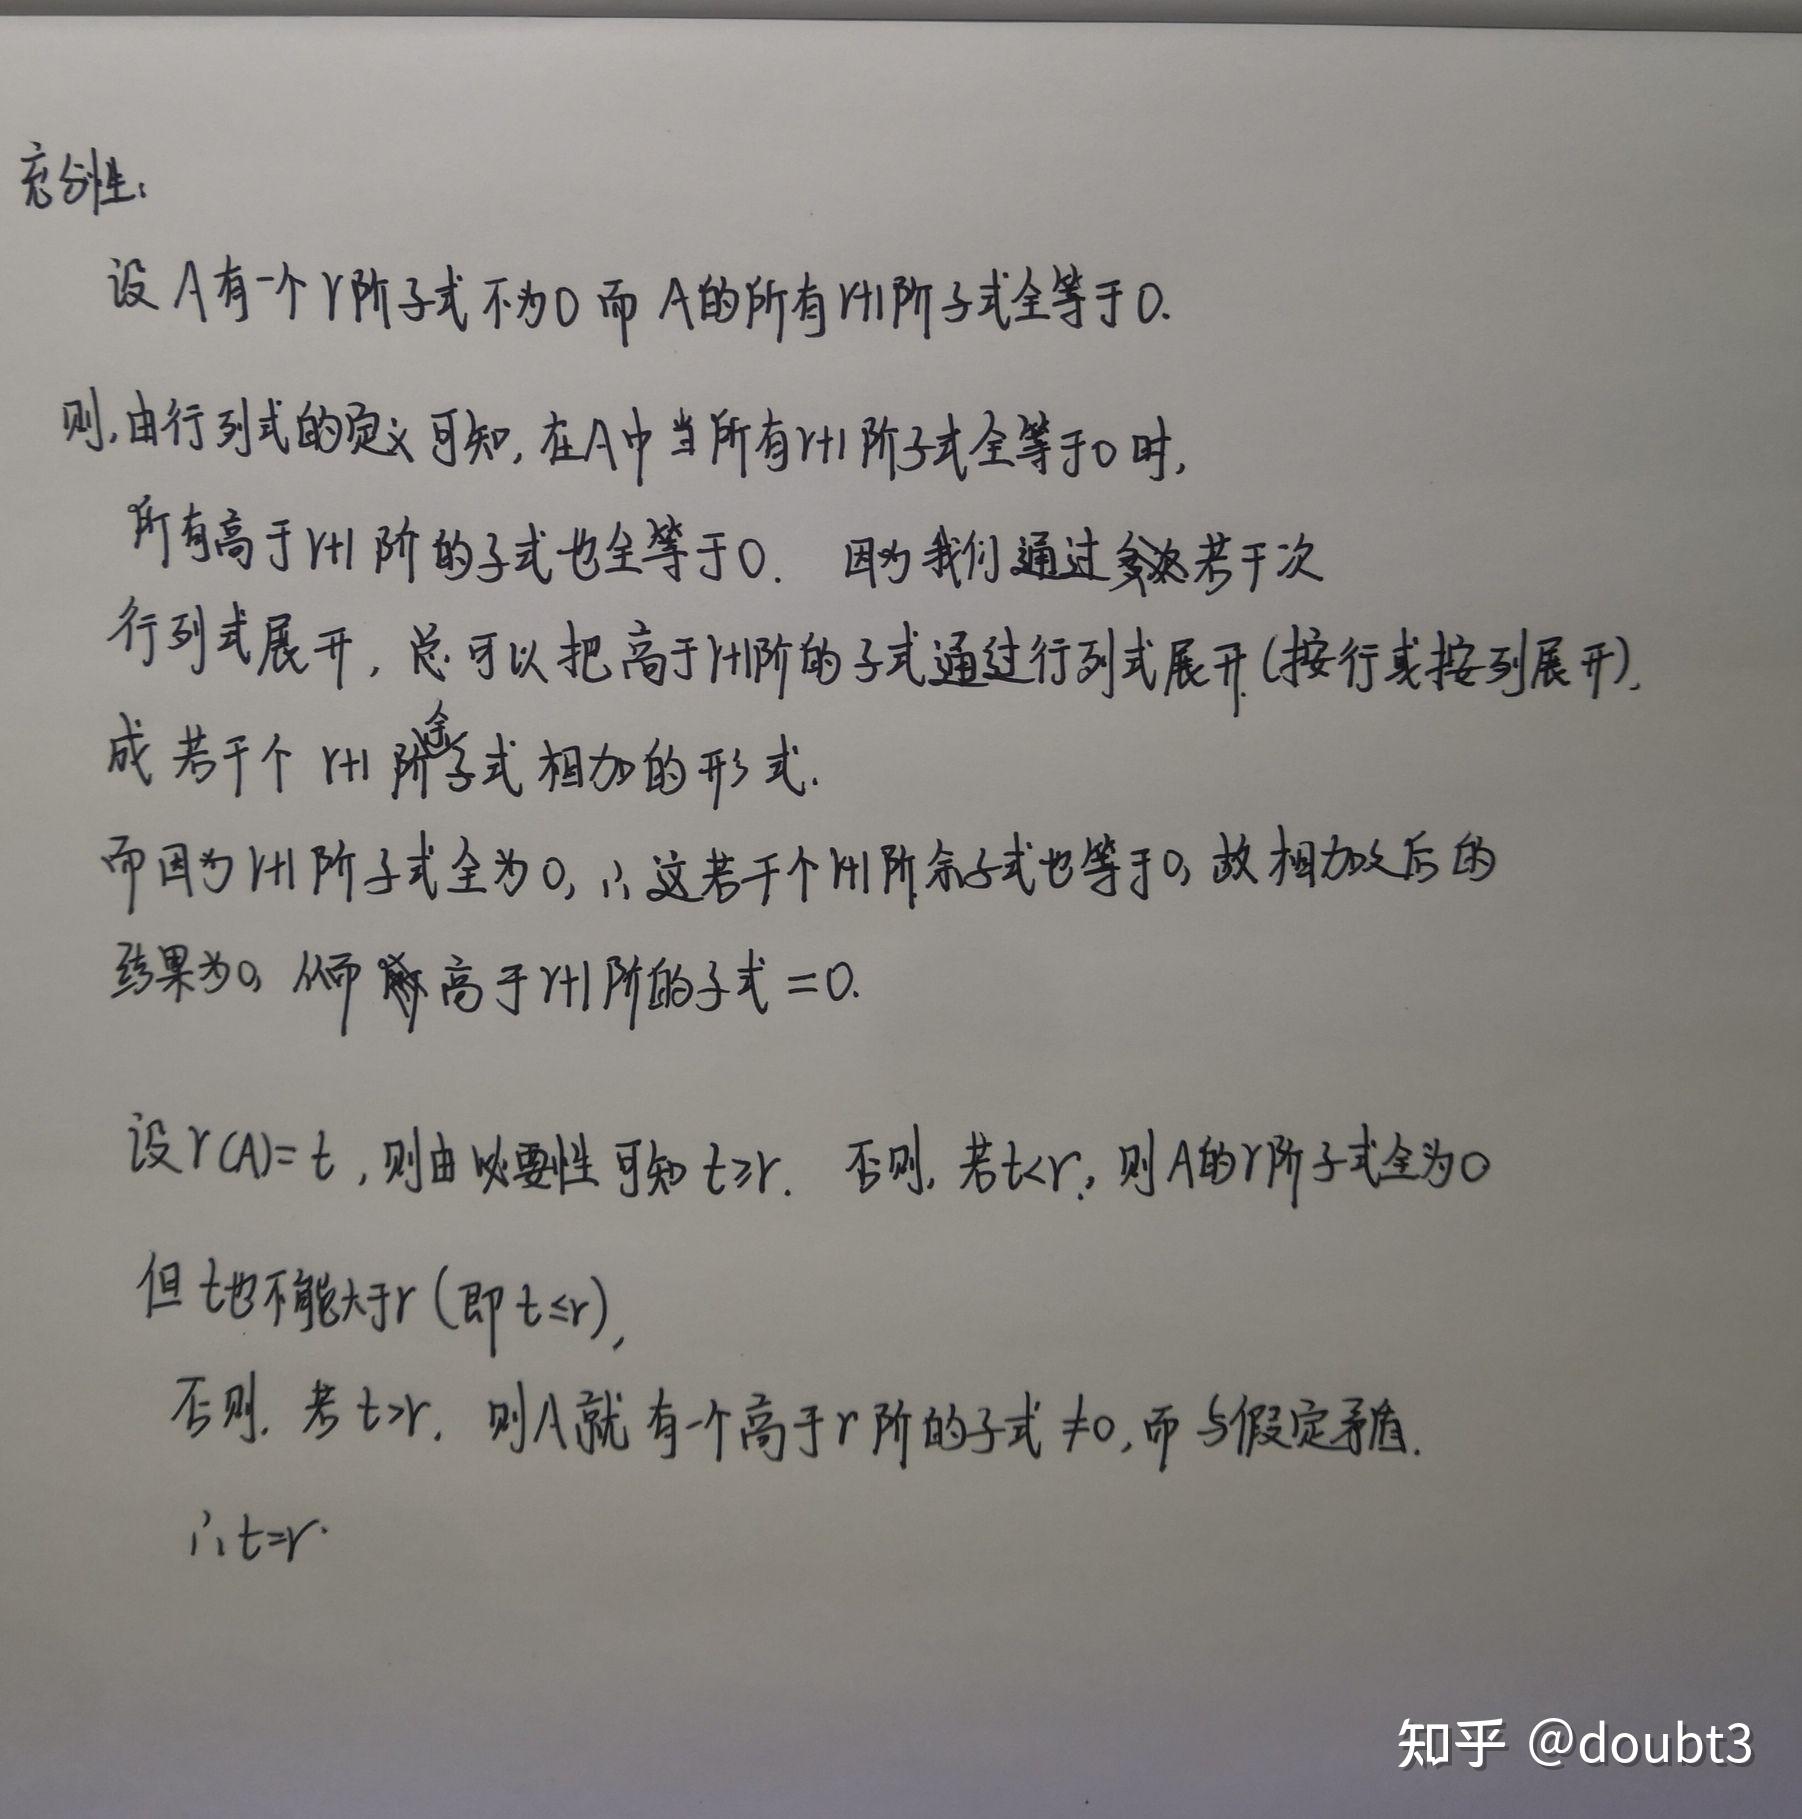 充分性:
设A有一个r阶子式不为0而A的所有r+1阶子式全等于0.
则,由行列式的定义可知,在A中当所有r+1阶子式全等于0时,
所有高于r+1阶的子式也全等于0. 因为我们通过若干次
行列式展开,总可以把高于r+1阶的子式通过行列式展开(按行或按列展开),
成若干个r+1阶余子式相加的形式.
而因为r+1阶子式全为0,∴这若干个r+1阶余子式也等于0,故相加之后的
结果为0,从而高于r+1阶的子式=0.
设r(A)=t,则由必要性可知t≥r. 否则,若t<r,则A的r阶子式全为0
但t也不能大于r(即t≤r),
否则,若t>r,则A就有一个高于r阶的子式≠0,而与假定矛盾.
∴t=r.
知乎 @doubt3